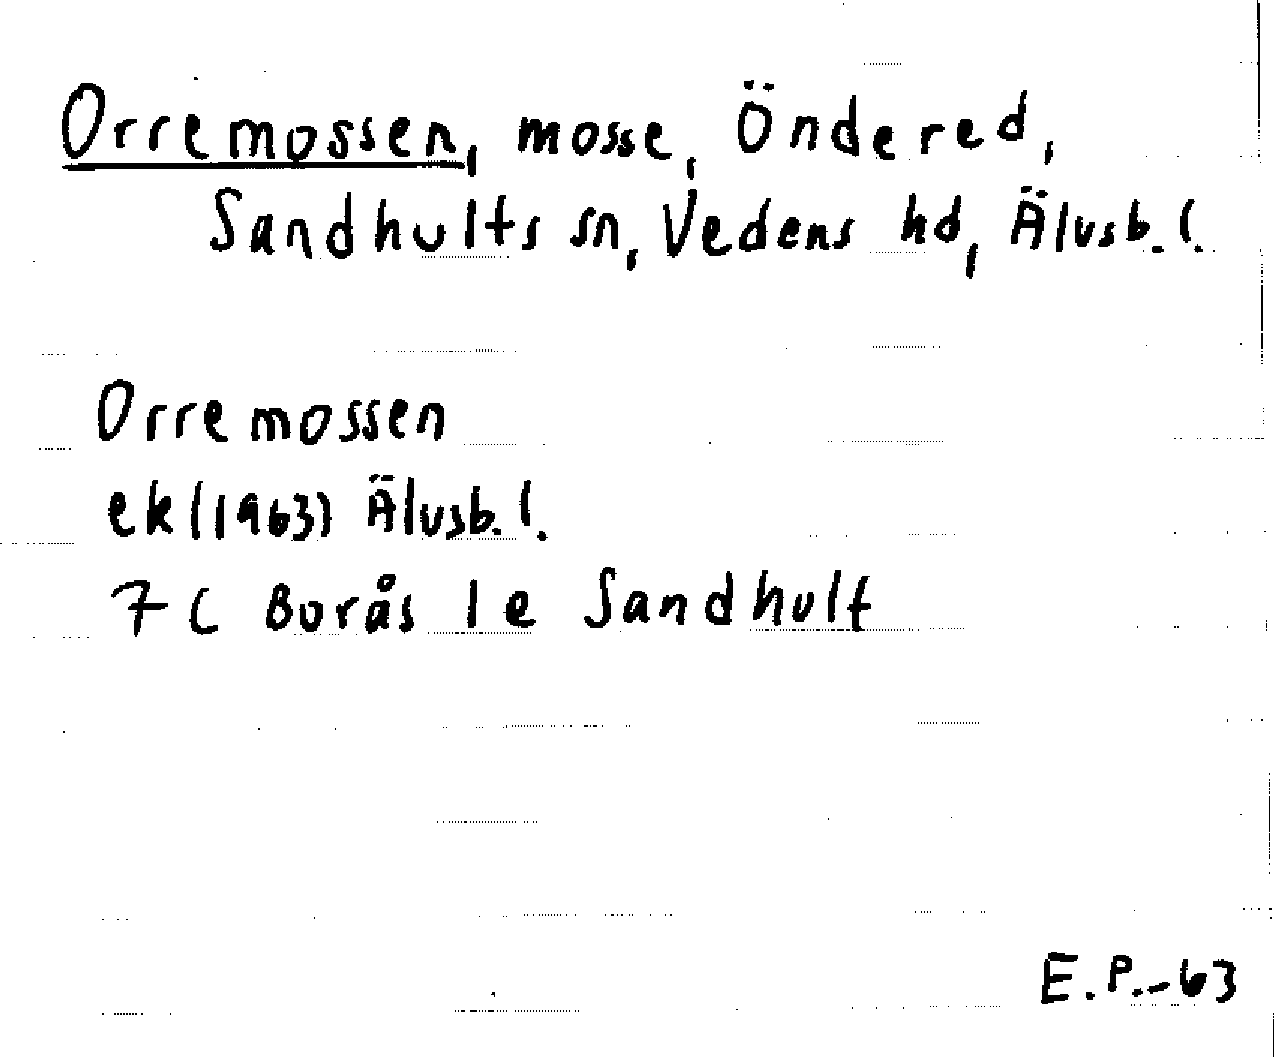 Orremossen, mosse, Öndered,
Sandhults sn, Vedens hd, Älvsb. l.
Orremossen
ek (1963) Älvsb. l.
7 C Borås 1 e Sandhult
E. P. -63